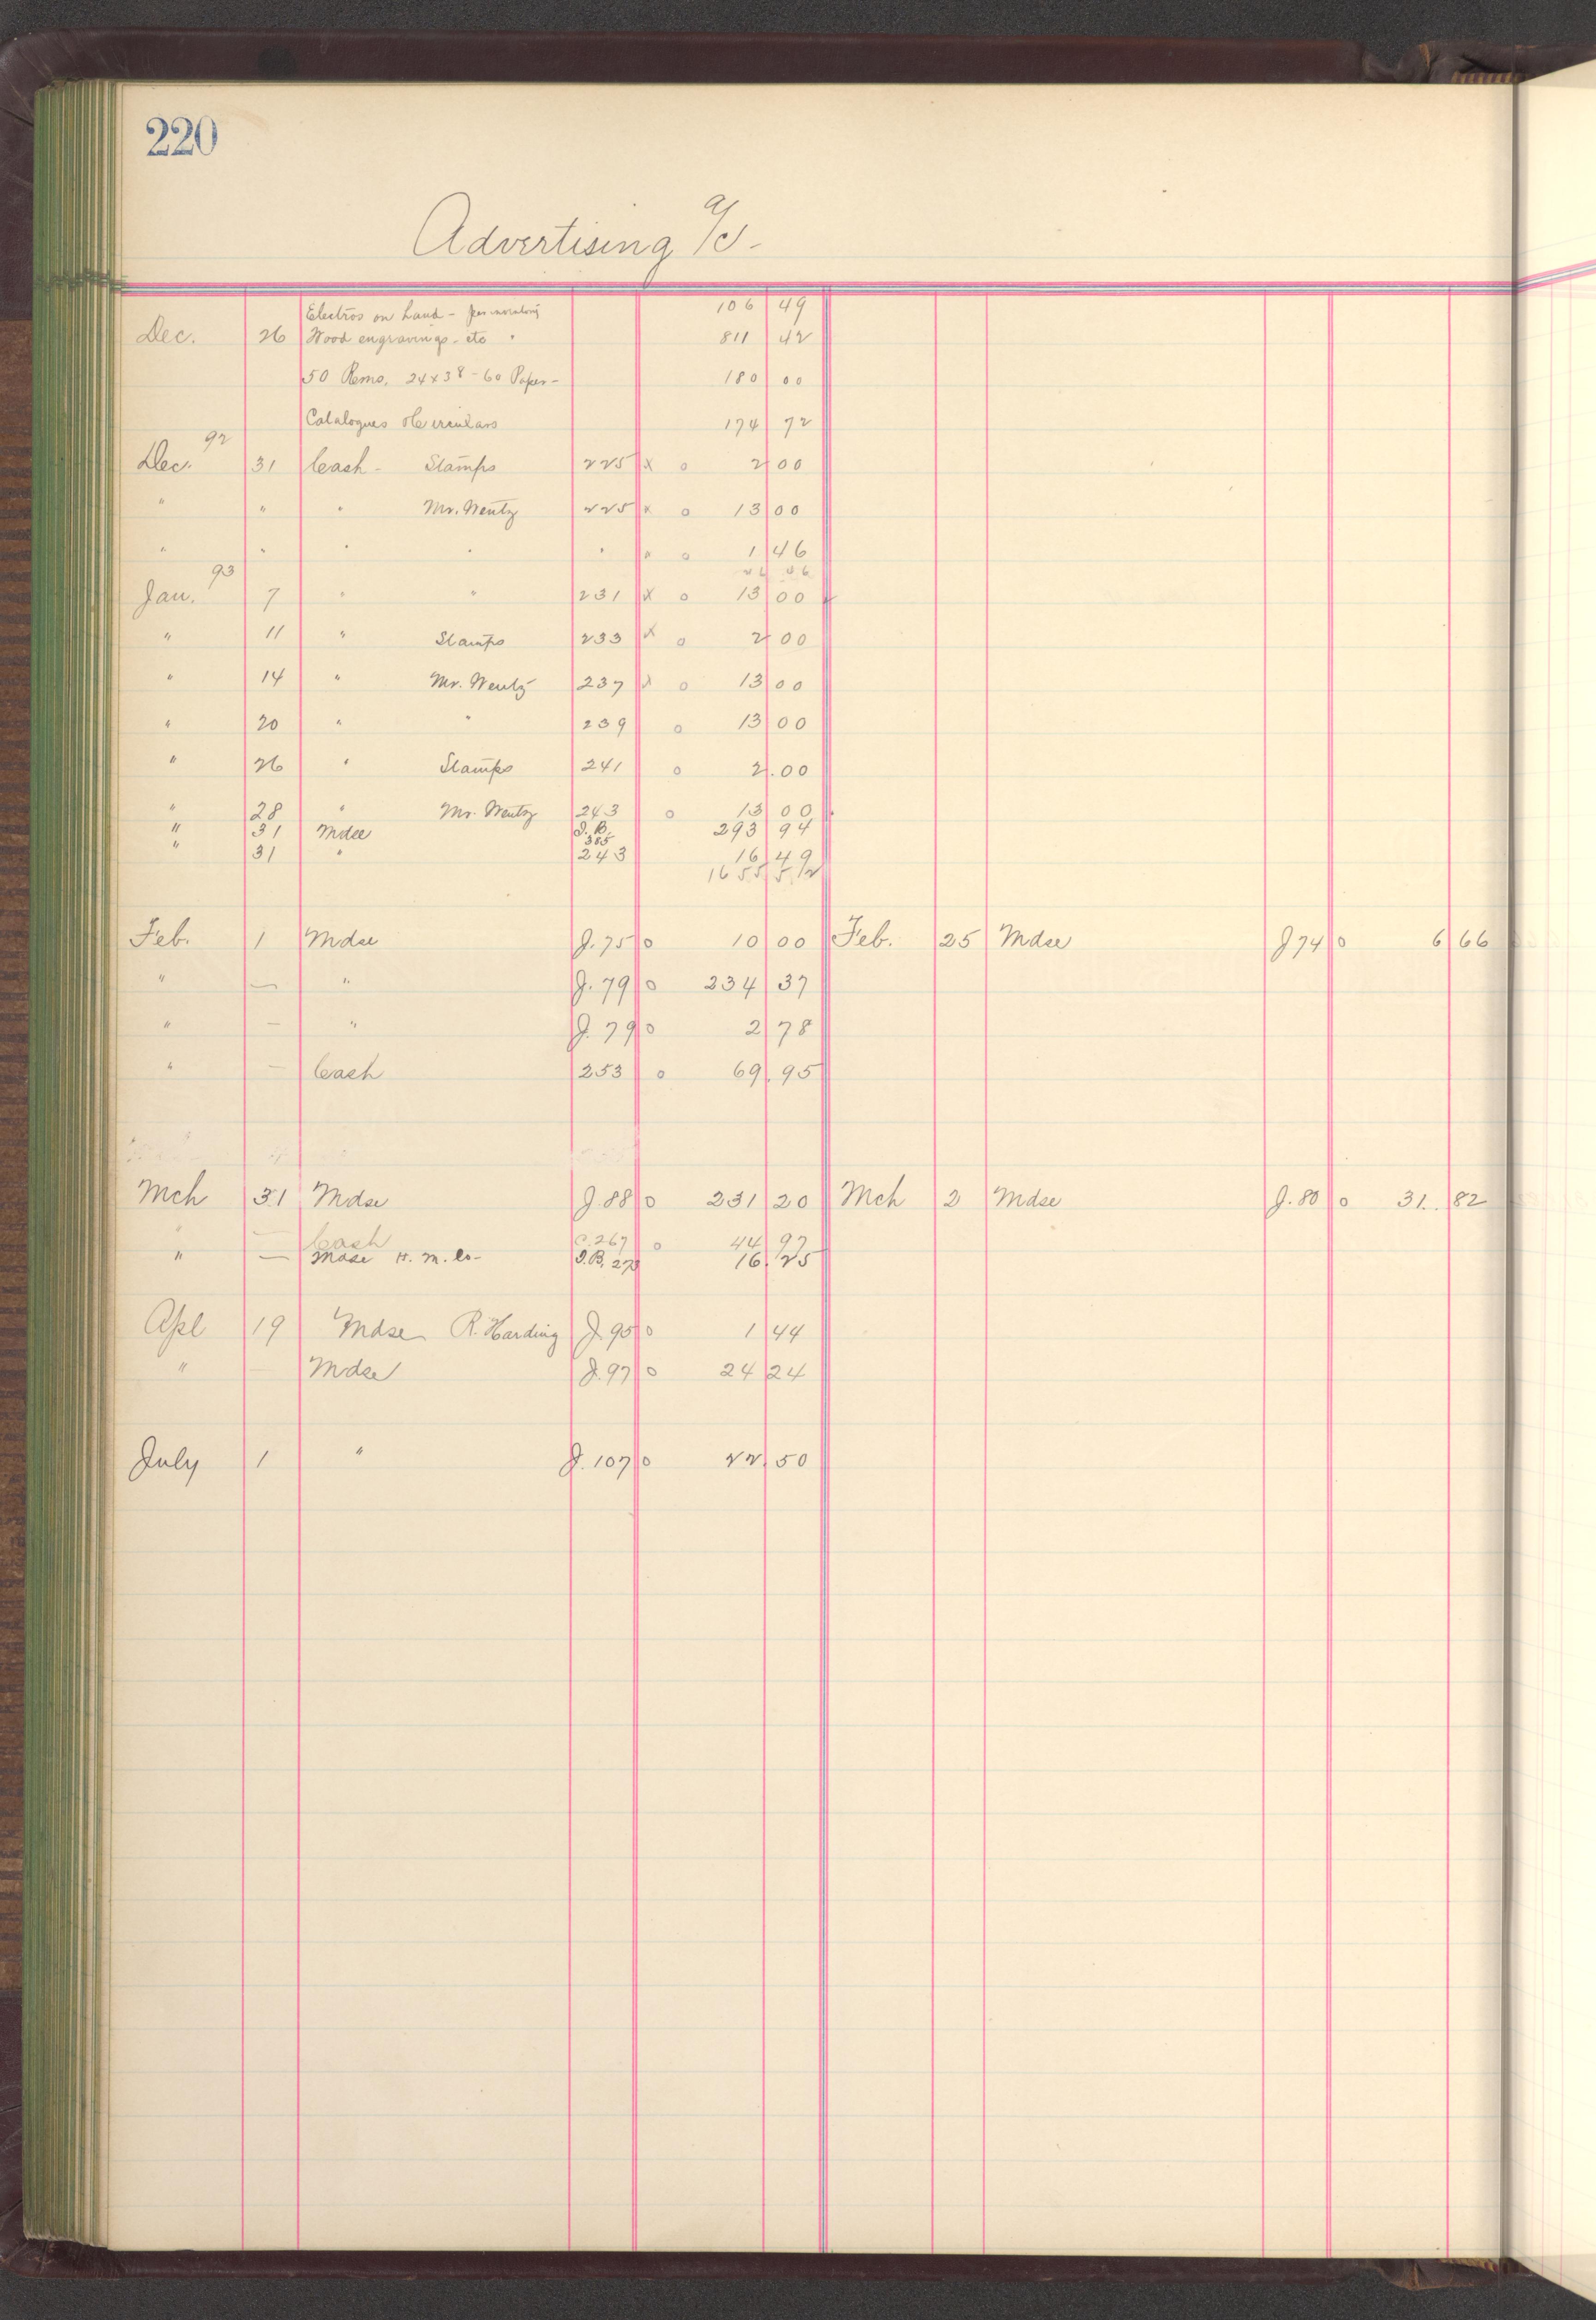 220
Advertising a/c -
Electros on hand - per inventory 106 49
Dec. 26 Wood engravings - etc " 811 42
50 Rms. 24x38 - 60 Paper - 180 00
Catalogues & Circulars 174 72
Dec. 92 31 Cash - Stamps 225 x o 2 00
" " " Mr. Wentz 225 x o 13 00
" " " " " " o 1 46
Jan. 93 7 " " 231 x o 13 00
" 11 " Stamps 233 x o 2 00
" 14 " Mr. Wentz 237 x o 13 00
" 20 " " 239 o 13 00
" 26 " Stamps 241 o 2.00
" 28 " Mr. Wentz 243 o 13 00
" 31 Mdse I.B. 385 293 94
" 31 " 243 16 49
1655 52
Feb. 1 Mdse J. 75 o 10 00 Feb. 25 Mdse J 74 o 6 66
" — " J. 79 o 234 37
" — " J. 79 o 2 78
" — Cash 253 o 69.95
Mch 31 Mdse J. 88 o 231 20 Mch 2 Mdse J. 80 o 31. 82
" — Cash C. 267 o 44 97
" — Mdse H. M. Co - I.B. 270 16 25
Apl 19 Mdse R. Harding J. 95 o 1 44
" — Mdse J. 97 o 24 24
July 1 " J. 107 o 22 50